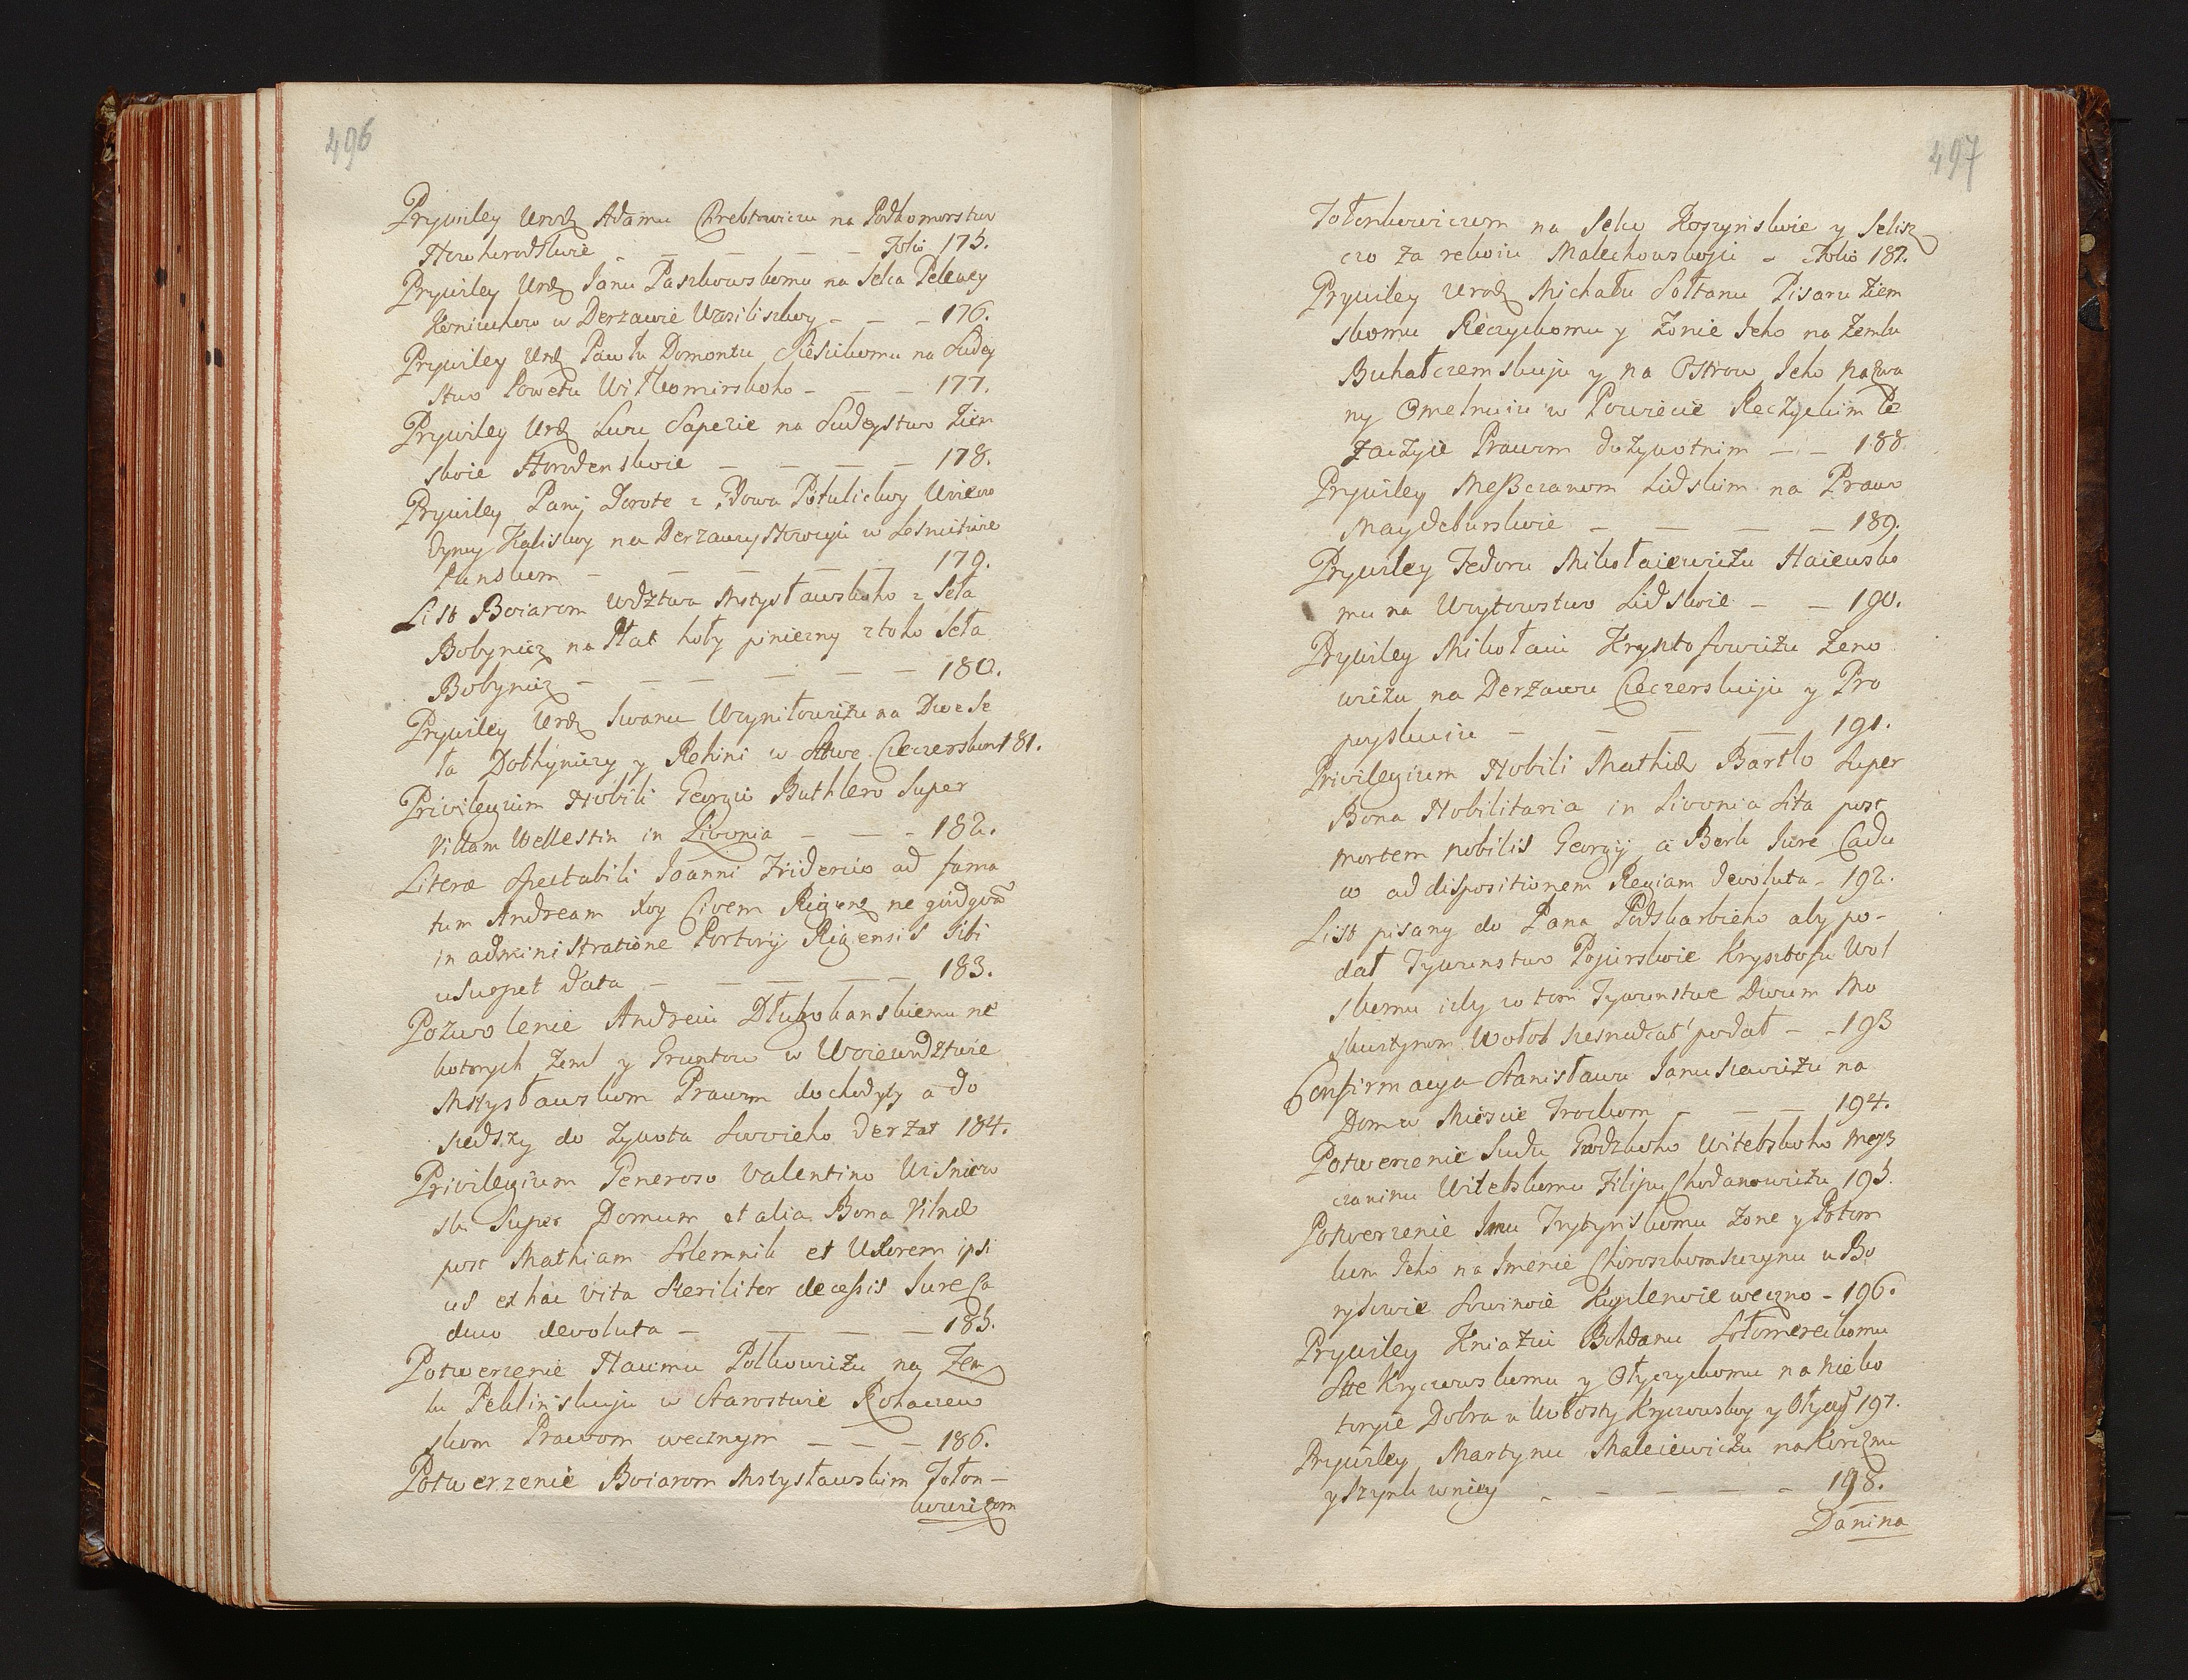 496
Prywiley Urodz Adamu Chrebtowiczu na Podkomorstwo
Nowhorodskoie — — — — Folio 175.
Prywiley Urdz Janu Paszkowskomu na Selca Pelewcy
Koniuchow w Derzawie Wasiliszkoy — — — 176.
Prywiley Urdz Pawłu Domontu Siesickomu na Sudey
stwo Powetu Wiłkomirskoho — — — 177.
Prywiley Urdz Lwu Sapezie na Sudeystwo Ziem
skoie Horodenskoie — — — — 178.
Prywiley Panij Dorote z Hdowa Potulickoy Woiewo
dynoy Kaliskoy na Derzawu Nowuju w Lesnictwie
Punskom — — — — — 179.
List Boiarom Wdztwa Mstysławskoho z Seła
Bobynicz na Płat hoły pinieżny z toho Seła
Bobynicz — — — — — 180.
Prywiley Urdz Iwanu Woyniłowiżu na Dwe Se
ła Dołhyniczy y Rehini w Sttwe Czeczerskom 181.
Privilegium Nobili Georgio Buthlero Super
Villam Wellestin in Livonia — — — 182.
Literæ Spectabili Joanni Friderico ad fama
tum Andream Koy Civem Rigens ne quidqvā
in administratione Portorij Rigensis sibi
usurpet data — — — — — 183.
Pozwolenie Andreiu Długokanskiemu ne
kotorych Zeml y Gruntow w Woiewodztwie
Mstysławskom Prawom dochodyty a do
szedszy do Zywota Swoieho Derzat 184.
Privilegium Generoso Valentino Wisniow
ski Super Domum et alia Bona Vilnæ
post Mathiam Solemnik et Uxorem ipsi
us ex hac vita Steriliter decessis Jure Ca
duco devoluta — — — — 185.
Potwerzenie Naumu Połkowiżu na Zem
lu Peklinskuju w Starostwie Rohaczew
skom Prawom wecznym — — — 186.
Potwerzenie Boiarom Mstysławskim Fołon-
kowiczom
497
Fołonkowiczom na Selco Koszynskoie y Selisz
czo za rekoiu Malechowskoju - Folio 187.
Prywiley Urodz Michału Sołtanu Pisaru Ziem
skomu Reczyckomu y Zonie Jeho na Zemlu
Buhałczemskuju y na Ostrow Jeho nazwa
ny Omelnuiu w Powiecie Reczyckim Po
zaczyie Prawom dożywotnim — — 188
Prywiley Meßczanom Lidskim na Prawo
Maydeburskoie — — — — 189.
Prywiley Fedoru Mikołaiewiżu Haiewsko
mu na Woytowstwo Lidskoie — — 190.
Prywiley Mikołaiu Krysztofowiżu Zeno
wiżu na Derżawu Czeczerskuju y Pro
poyskuiu — — — — 191.
Privilegium Nobili Mathiæ Bartlo Super
Bona Nobilitaria in Livonia Sita post
mortem nobilis Georgij à Berk Jure Cadu
co ad dispositionem Regiam devoluta - 192.
List pisany do Pana Podskarbieho aby po-
dał Tywunstwo Pojurskoie Krysztofu Wol
skomu icły w tom Tywunstwe Dwum Mo
skwitynom Wołok szesnadcat' podał - - 193
Confirmacya Stanisławu Januszewiżu na
Dom w Miescie Trockom — — — 194.
Potwerzenie Sudu Grodzkoho Witebskoho Meß
czaninu Witebskomu Filipu Chodanowiżu 195.
Potwerzenie Jmu Tryzynskomu Zone y Potom
kom Jeho na Jmenie Choroszkomszczyznu u Bo
rysowie Swinoie Kuplenoie weczno - 196.
Prywiley Kniaziu Bohdanu Sołomereckomu
Stte Kryczewskomu y Ołyczyckomu na nieko
toryie Dobra u Wołosty Kryczewskoy y Ołyczy 197.
Prywiley Martynu Maleiewiżu na Korczmu
y Szynkownicy - — — — - 198.
Danina